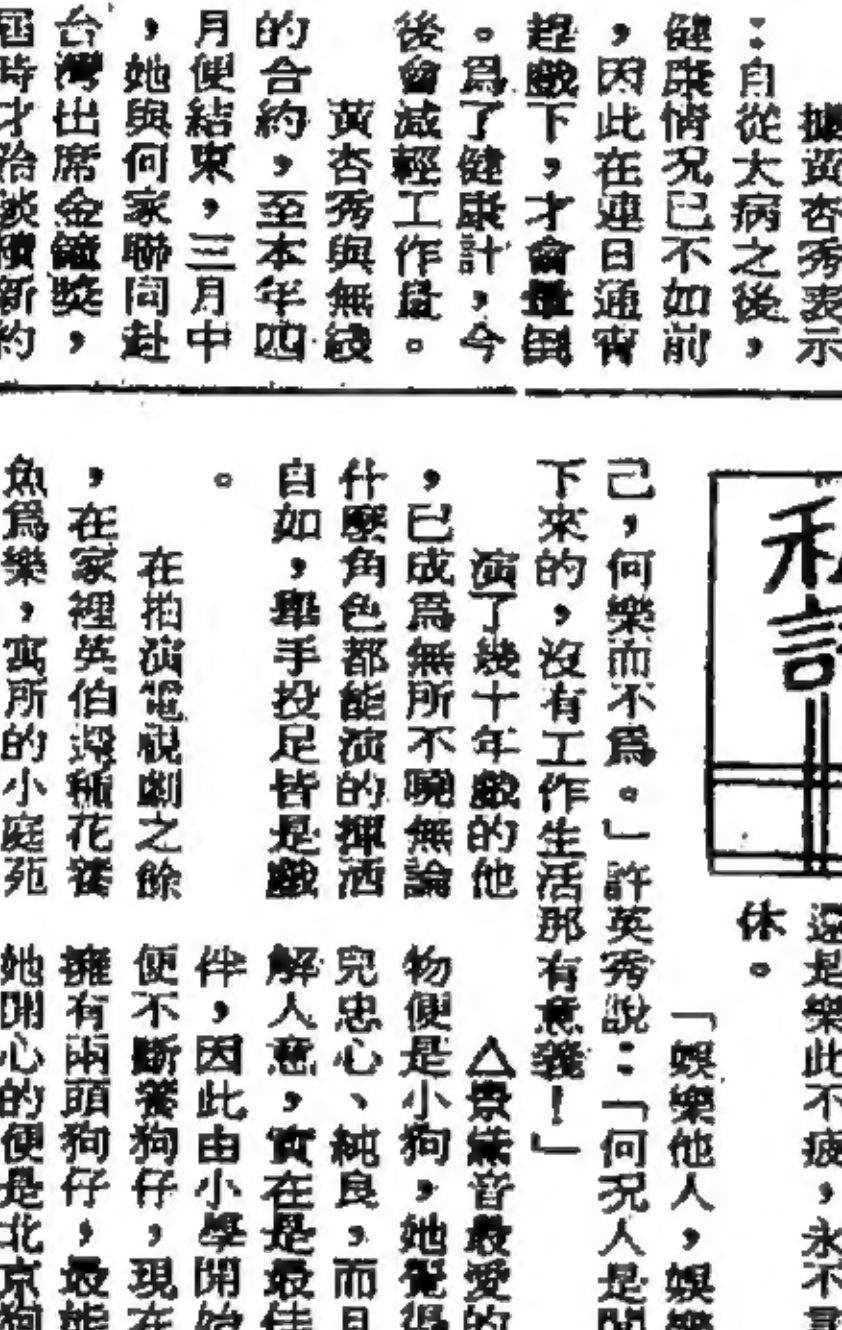 據黃杏秀表示
：自從大病之後，
健康情况已不如前
，因此在連日通宵
趕戲下，才會暈倒
。爲了健康計，今
後會減輕工作量。
黃杏秀與無綫
的合約，至本年四
月便結束，三月中
，她與何家聯同赴
台灣出席金鐘獎，
屆時才洽談續新約
私
還是樂此不疲，永不言
休。
「娛樂他人，娛樂
己，何樂而不爲。」許英秀說：「何況人是閒
下來的，沒有工作生活那有意義！」
演了幾十年戲的他
，已成爲無所不曉無論
什麼角色都能演的揮洒
自如，舉手投足皆是戲
。
在拍演電視劇之餘
，在家裡英伯還種花養
魚爲樂，寓所的小庭苑
△景黛音最愛的
物便是小狗，她覺得
兒忠心、純良，而且
解人意，實在是最佳
伴，因此由小學開始
便不斷養狗仔，現在
擁有兩頭狗仔，最能
她開心的便是北京狗